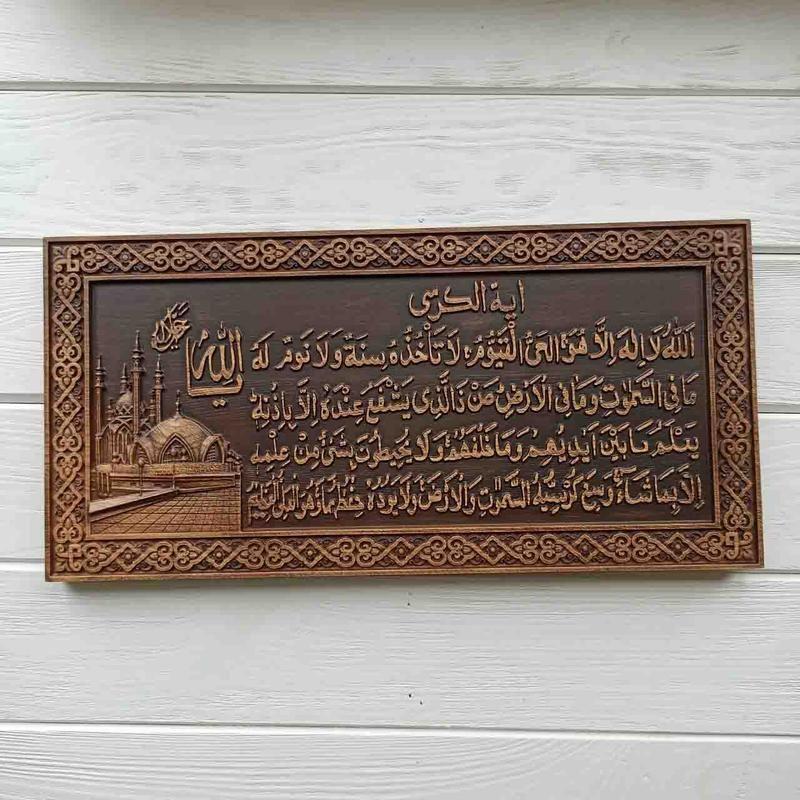 اية الكرسى
اللّٰهُ لَا اِلٰهَ اِلَّا هُوَ الْحَىُّ الْقَيُّوْمُ لَا تَأْخُذُهُ سِنَةٌ وَلَا نَوْمٌ لَهُ
مَا فِى السَّمٰوٰتِ وَمَا فِى الْاَرْضِ مَنْ ذَالَّذِى يَشْفَعُ عِنْدَهُ اِلَّا بِاِذْنِهِ
يَعْلَمُ مَا بَيْنَ اَيْدِيْهِمْ وَمَا خَلْفَهُمْ وَلَا يُحِيْطُوْنَ بِشَىْءٍ مِنْ عِلْمِهِ
اِلَّا بِمَا شَاءَ وَسِعَ كُرْسِيُّهُ السَّمٰوٰتِ وَالْاَرْضَ وَلَا يَؤُدُهُ حِفْظُهُمَا وَهُوَ الْعَلِىُّ الْعَظِيْمُ
اللّٰه
جل جلاله